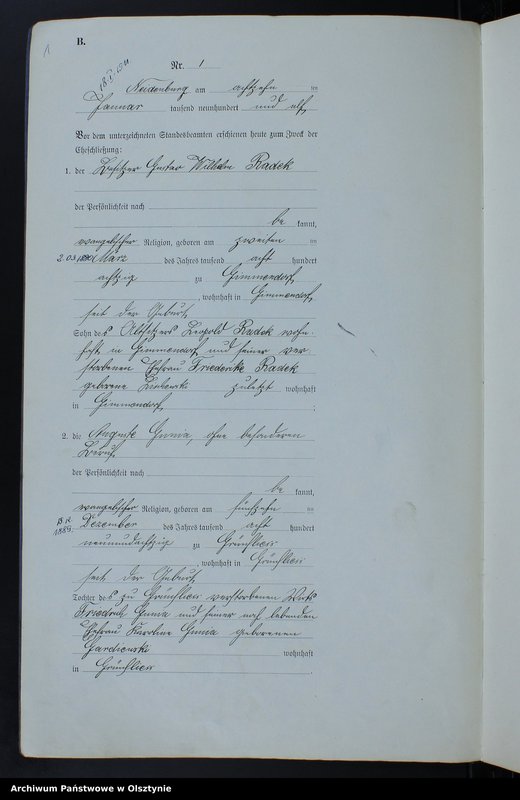 1
B.
Nr. 1
18.I.1911
Neidenburg am achtzehn ten
Januar tausend neunhundert und elf
Vor dem unterzeichneten Standesbeamten erschienen heute zum Zweck der
Eheschließung:
1. der Besitzer Gustav Wilhelm Radek
der Persönlichkeit nach
be kannt,
evangelischer Religion, geboren am zweiten ten
März des Jahres tausend acht hundert
achtzig zu Gimmendorf
, wohnhaft in Gimmendorf
seit der Geburt
Sohn des Altsitzers Leopold Radek wohn-
haft in Gimmendorf und seiner ver-
storbenen Ehefrau Friederike Radek
geborene zuletzt wohnhaft
in Gimmendorf ;
2. die Auguste Gunia, ohne besonderen
Beruf
der Persönlichkeit nach
be kannt,
evangelischer Religion, geboren am fünfzehn ten
1889
Dezember des Jahres tausend acht hundert
neunundachtzig zu
, wohnhaft in
seit der Geburt
Tochter des zu verstorbenen Wirts
Friedrich Gunia und seiner noch lebenden
Ehefrau Karoline Gunia geborenen
wohnhaft
in .
Archiwum Państwowe w Olsztynie